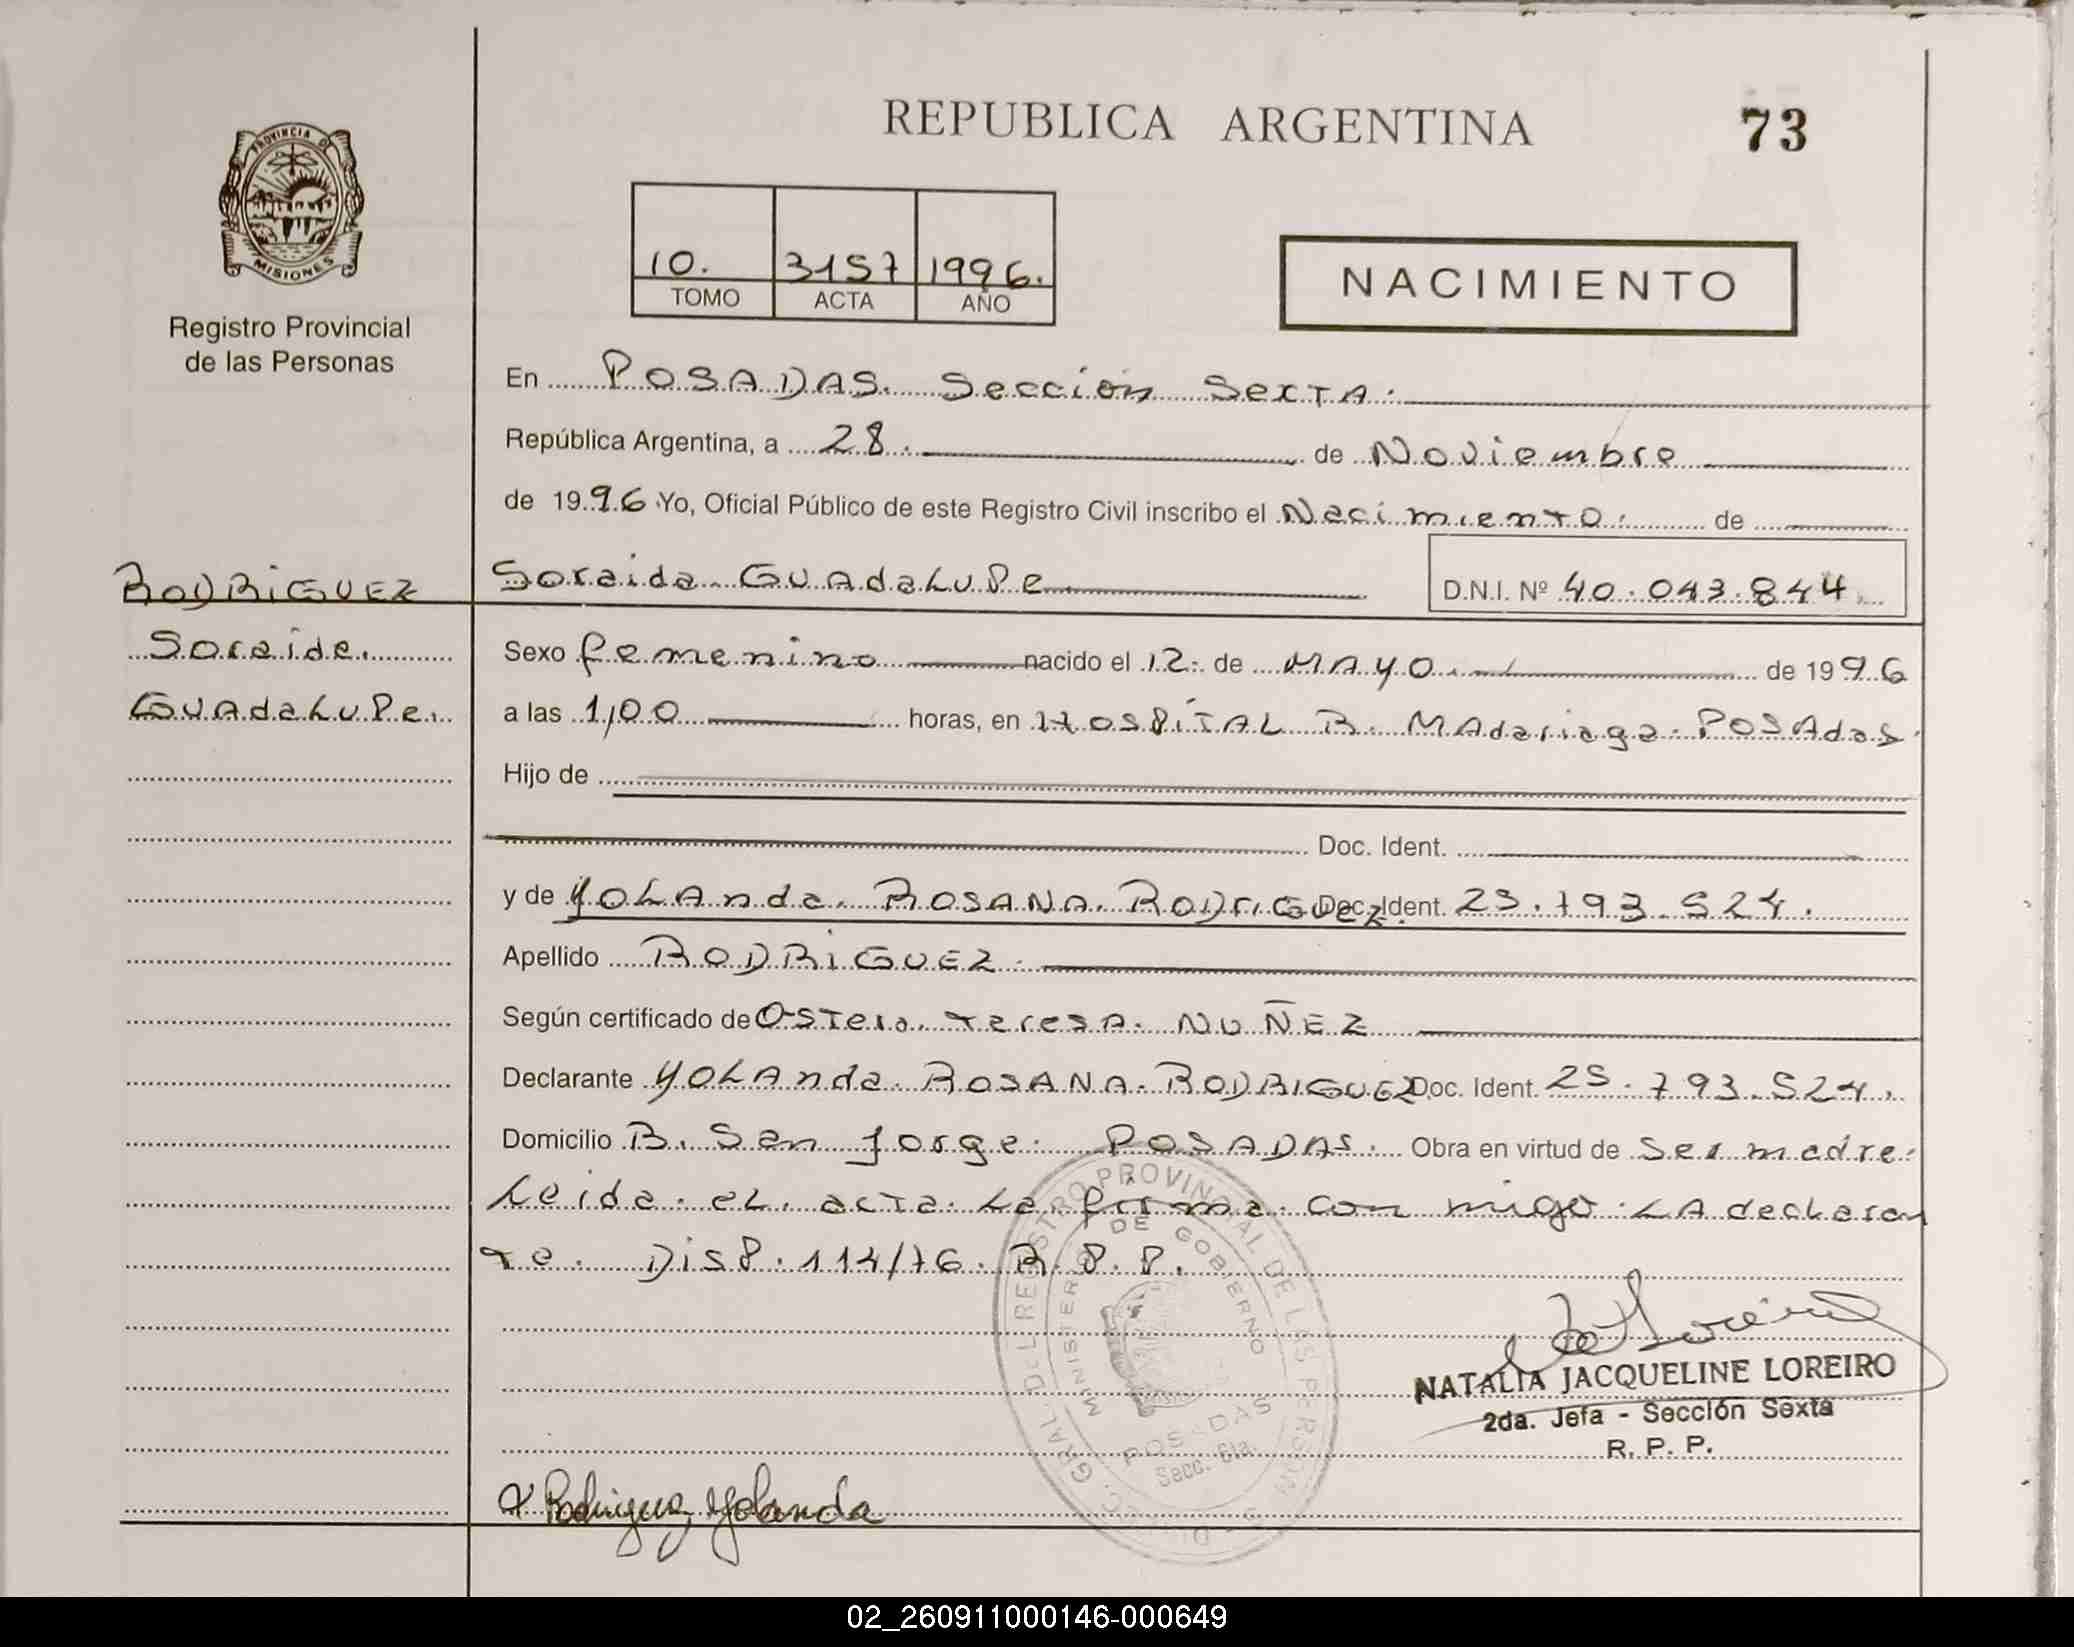 REPUBLICA ARGENTINA
73
PROVINCIA DE
MISIONES
Registro Provincial
de las Personas
10. 3157 1996.
TOMO ACTA AÑO
NACIMIENTO
En POSADAS. Sección Sexta.
República Argentina, a 28. de Noviembre
de 1996 Yo, Oficial Público de este Registro Civil inscribo el Nacimiento. de
RODRIGUEZ
Soraida
Guadalupe.
Soraida Guadalupe D.N.I. Nº 40.043.844.
Sexo femenino nacido el 12. de MAYO. de 1996
a las 1,00 horas, en HOSPITAL R. MAdariaga. POSAdas.
Hijo de
Doc. Ident.
y de YOLAnda. ROSANA. RODriGUez. Doc. Ident. 25.793.524.
Apellido RODRiGUEZ.
Según certificado de Teresa. NUÑEZ
Declarante YOLAnda. ROSANA. RODRIGUEZ Doc. Ident. 25.793.524.
Domicilio B. San Jorge. POSADAS. Obra en virtud de Ser madre.
Leida. el. acta. La. firma. con migo. LA declaran
te. Disp. 114/76. R.P.P.
DIREC. GRAL. DEL REGISTRO PROVINCIAL DE LAS PERSONAS
MINISTERIO DE GOBIERNO
POSADAS
Secc. 6ta.
NATALIA JACQUELINE LOREIRO
2da. Jefa - Sección Sexta
R. P. P.
Rodriguez Yolanda
02_260911000146-000649